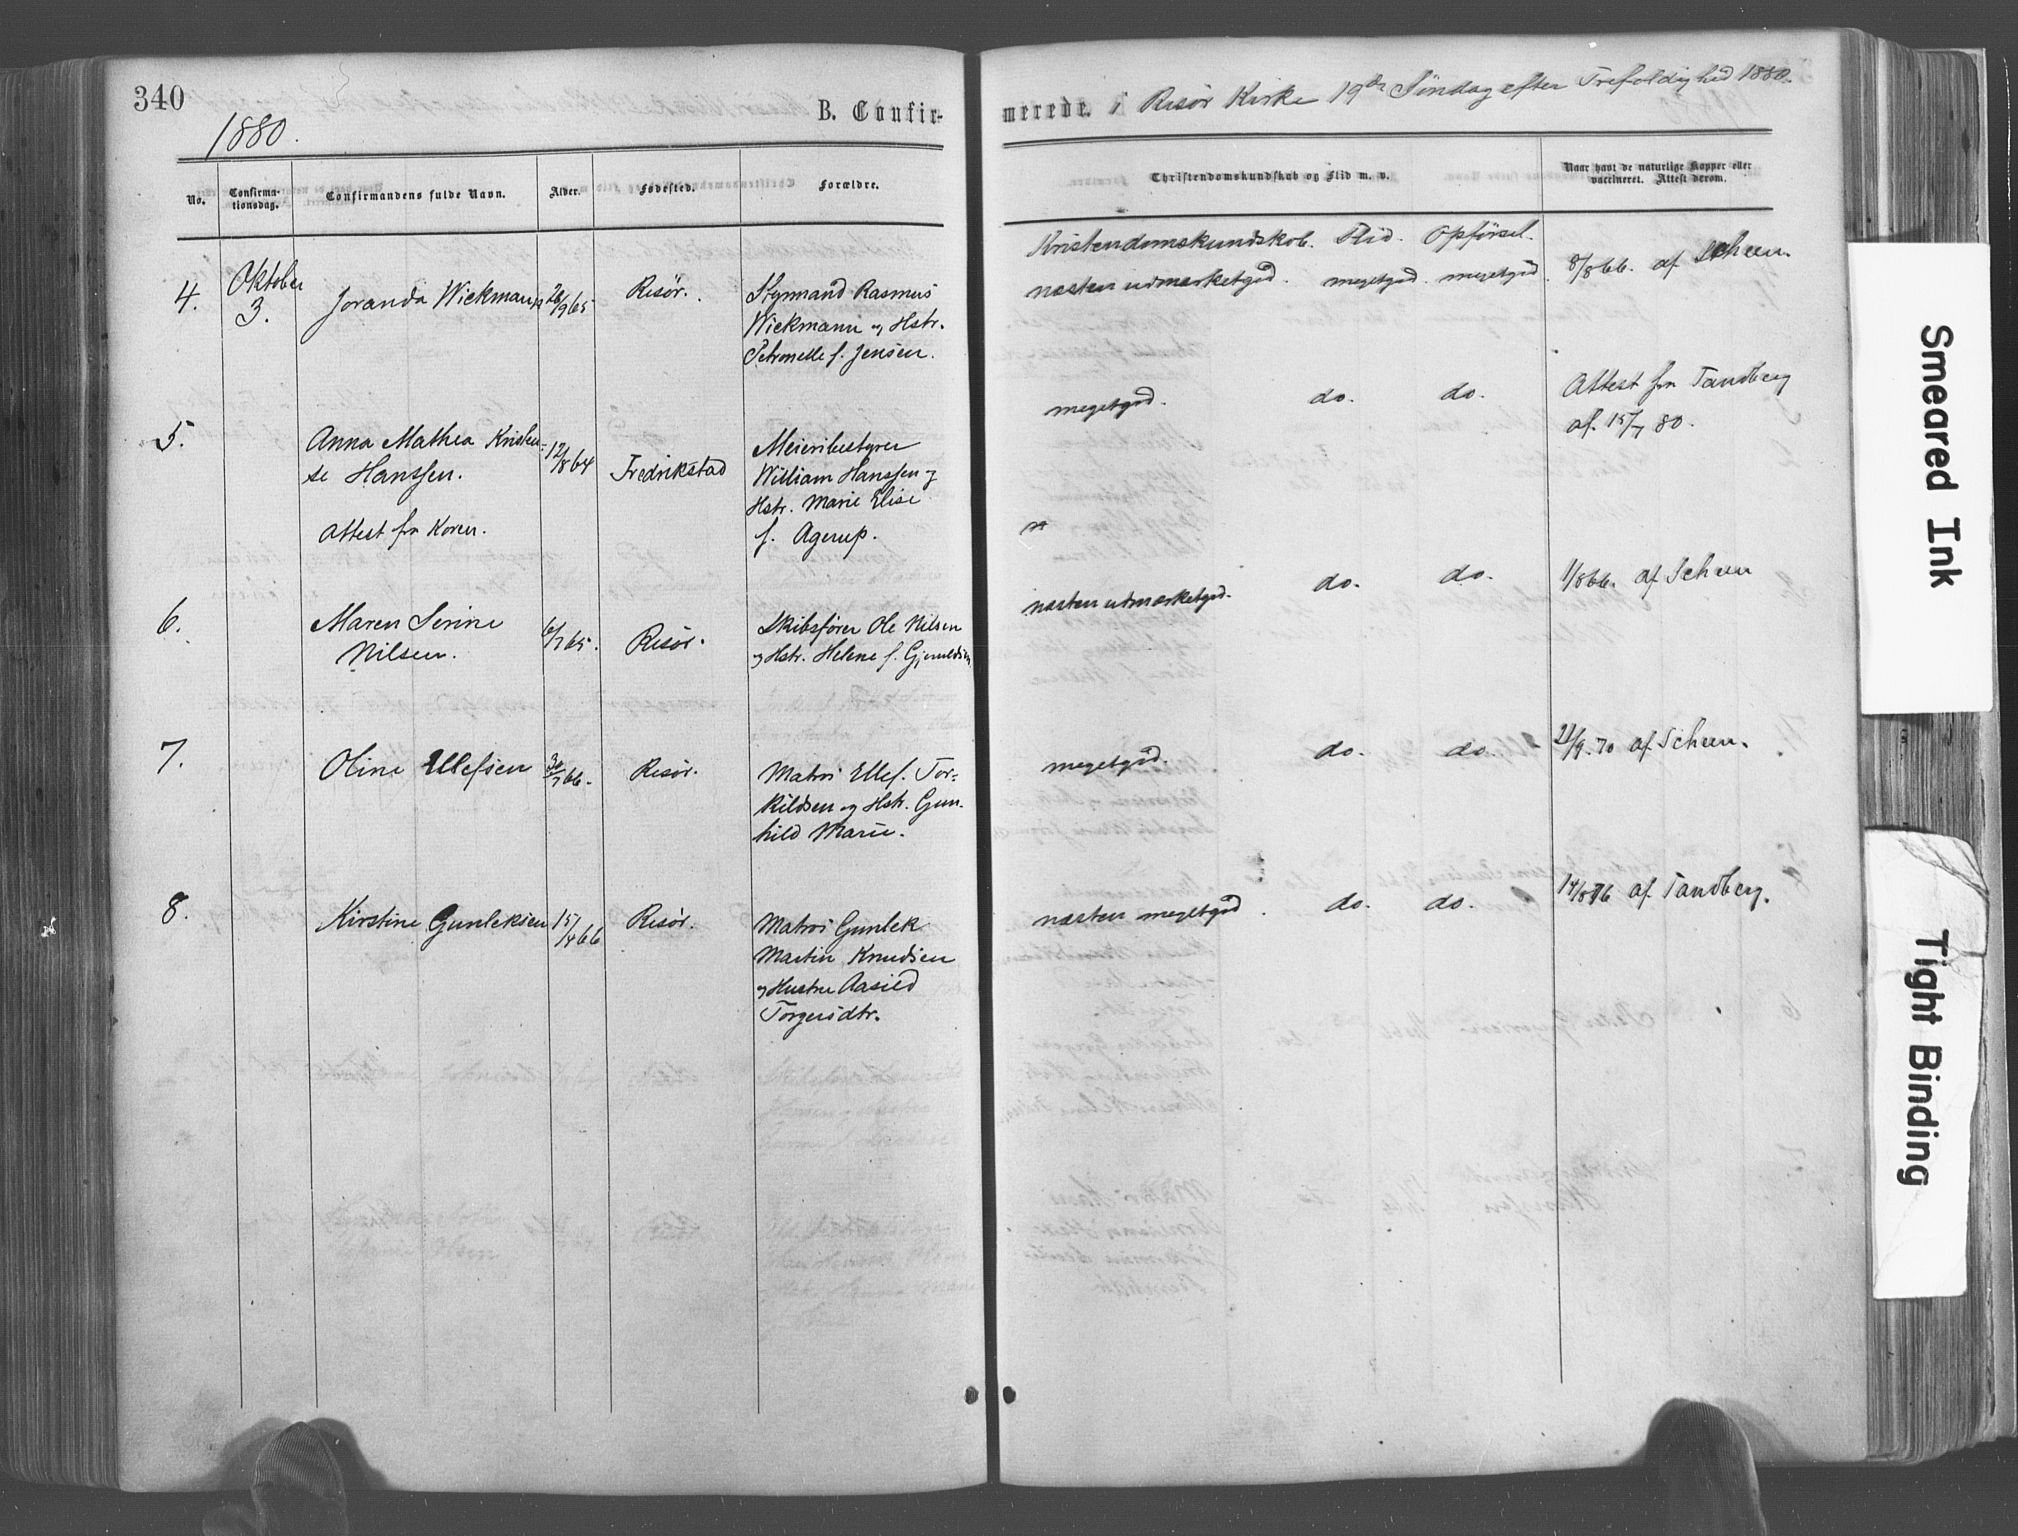 340
1880.
B. Confir-
merede. i Risør Kirke 19de Søndag efter Trefoldighed 1880.
No.
Confirma-
tionsdag.
Confirmandens fulde Navn.
Alder.
Fødested.
Forældre.
Christendomskundskab og Flid m. v.
Naar havt de naturlige Kopper eller
vaccineret. Attest derom.
Kristendomskundskab. Flid. Opførsel.
4.
Oktober
3.
Joranda Wickmann
26/9 65
Risør.
Styrmand Rasmus
Wickmann og Hstr.
Petronelle f. Jensen.
næsten udmærketgod. megetgod. megetgod.
8/8 66. af Scheen.
5.
Anna Mathea Kristen-
se Hanssen.
Attest fra Koren.
12/8 64
Fredrikstad
Meieribestyrer
William Hanssen og
Hstr. Marie Elise
f. Agerup.
megetgod. do. do.
Attest fra Tandberg
af 15/7 80.
6.
Maren Serine
Nilsen.
6/7 65.
Risør.
Skibsfører Ole Nilsen
og Hstr. Helene f. Gjeruldsen
næsten udmærketgod. do. do.
1/8 66. af Scheen
7.
Oline Ellefsen
30/7 66.
Risør.
Matros Ellef. Tor-
kildsen og Hstr. Gun-
hild Marie.
megetgod. do. do.
21/9. 70 af Scheen.
8.
Kirstine Gunleksen
15/4 66
Risør.
Matros Gunlek
Martin Knudsen
og Hustru Aasild
Torgersdtr.
næsten megetgod. do. do.
14/8 76 af Tandberg.
Smeared Ink
Tight Binding